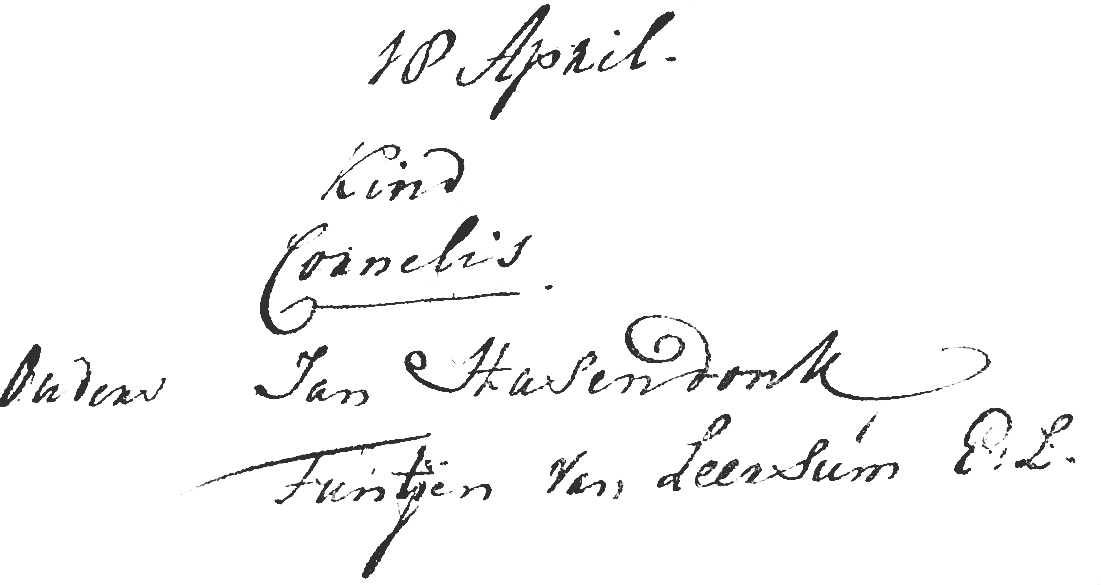 18 April.
Kind
Cornelis.
Ouders Jan Hasendonk
Fúntjen van Leersúm E. L.